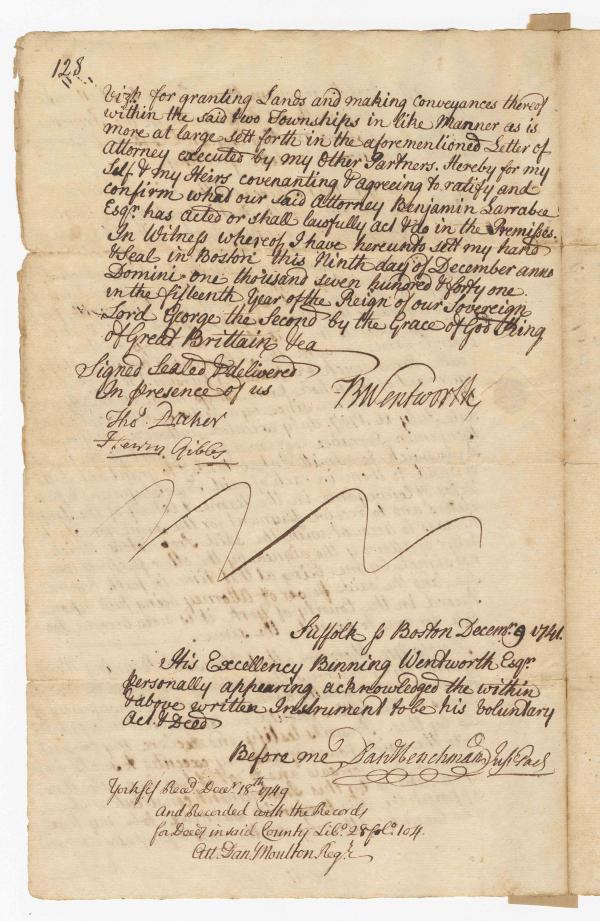 128
Vizt. for granting Lands and making Conveyances thereof
within the said two Townships in like Manner as is
more at large sett forth in the aforementioned Letter of
Attorney executed by my Other Partners. Hereby for my
Self & my Heirs covenanting & agreeing to ratify and
confirm what our said Attorney Benjamin Larrabee
Esqr. has acted or shall lawfully act & do in the Premisses.
In Witness whereof I have hereunto sett my hand
& Seal in Boston this Ninth day of December anno
Domini one thousand seven hundred & forty one.
in the fifteenth Year of the Reign of our Sovereign
Lord George the Second by the Grace of God King
of Great Brittain &ca
Signed Sealed & delivered
In presence of us
BWentworth
Tho.
Henry Gibbs
Suffolk ss Boston Decemr. 9 1741.
His Excellency Binning Wentworth Esqr.
personally appearing acknowledged the within
& above written Instrument to be his voluntary
Act & Deed
Before me Danl Henchman Jus Pacs
York ss Recd. Decr. 18th 1749
And Recorded with the Records
for Deeds in said County Libo. 28 folo. 104.
Att. Danl Moulton Regr.